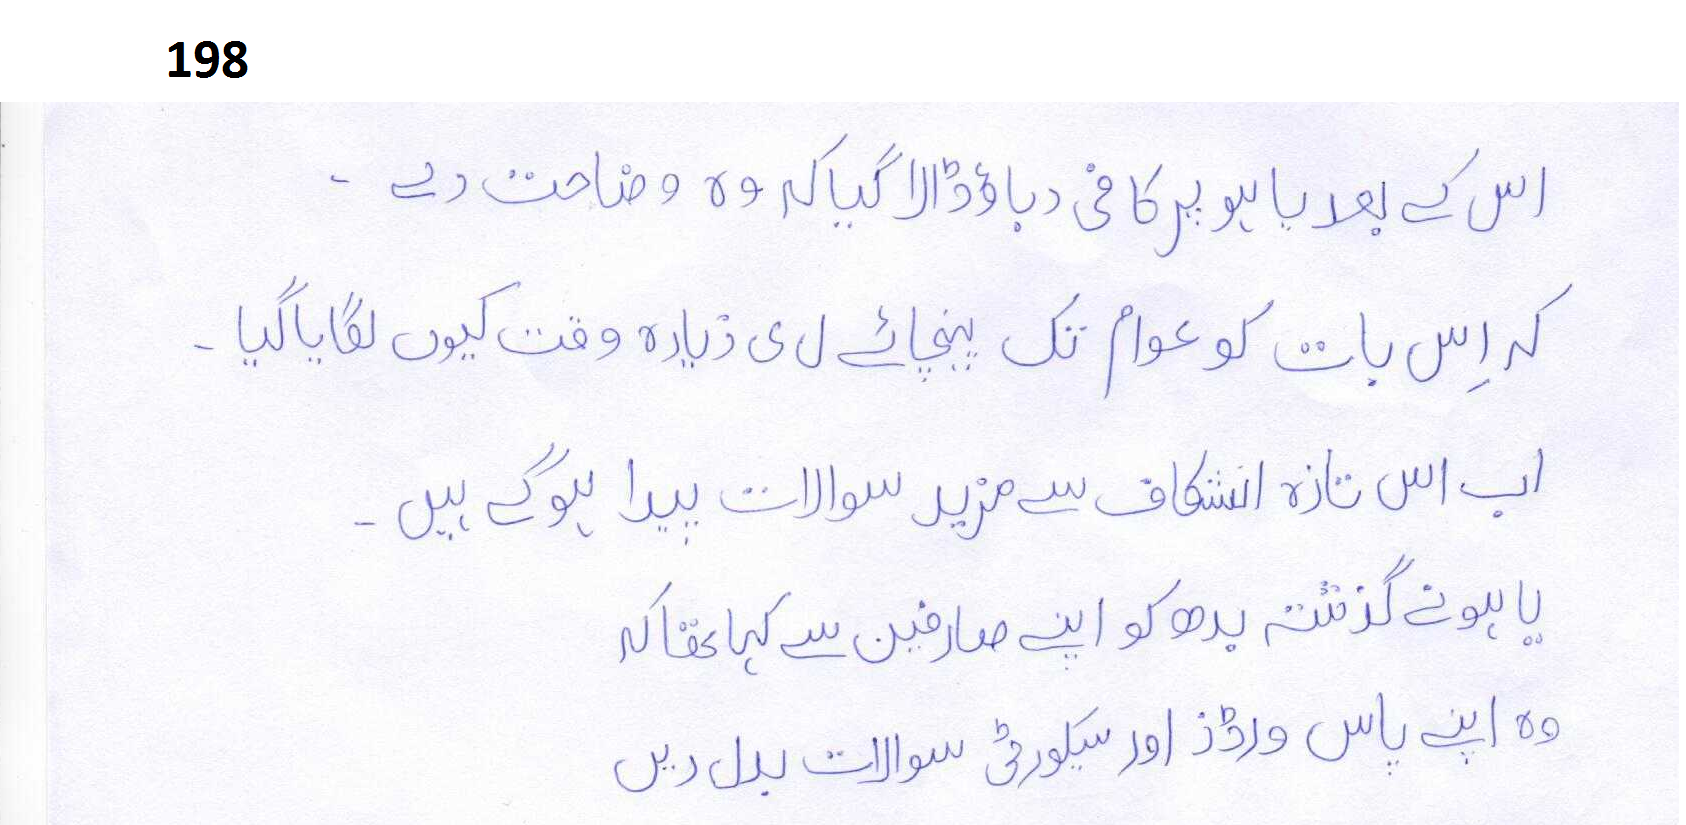 198
اس کے بعد یاہو پر کافی دباؤ ڈالا گیا کہ وہ وضاحت دے ۔
کہ اِس بات کو عوام تک پہنچائے ل ی زیارہ وقت کیوں لگایا گیا ۔
اب اس تازہ انشکاف سے مزید سوالات پیدا ہوگے ہیں ۔
یاہو نے گذشتہ بدھ کو اپنے صارفین سے کہا تھا کہ
وہ اپنے پاس ورڈز اور سیکورٹی سوالات بدل دیں